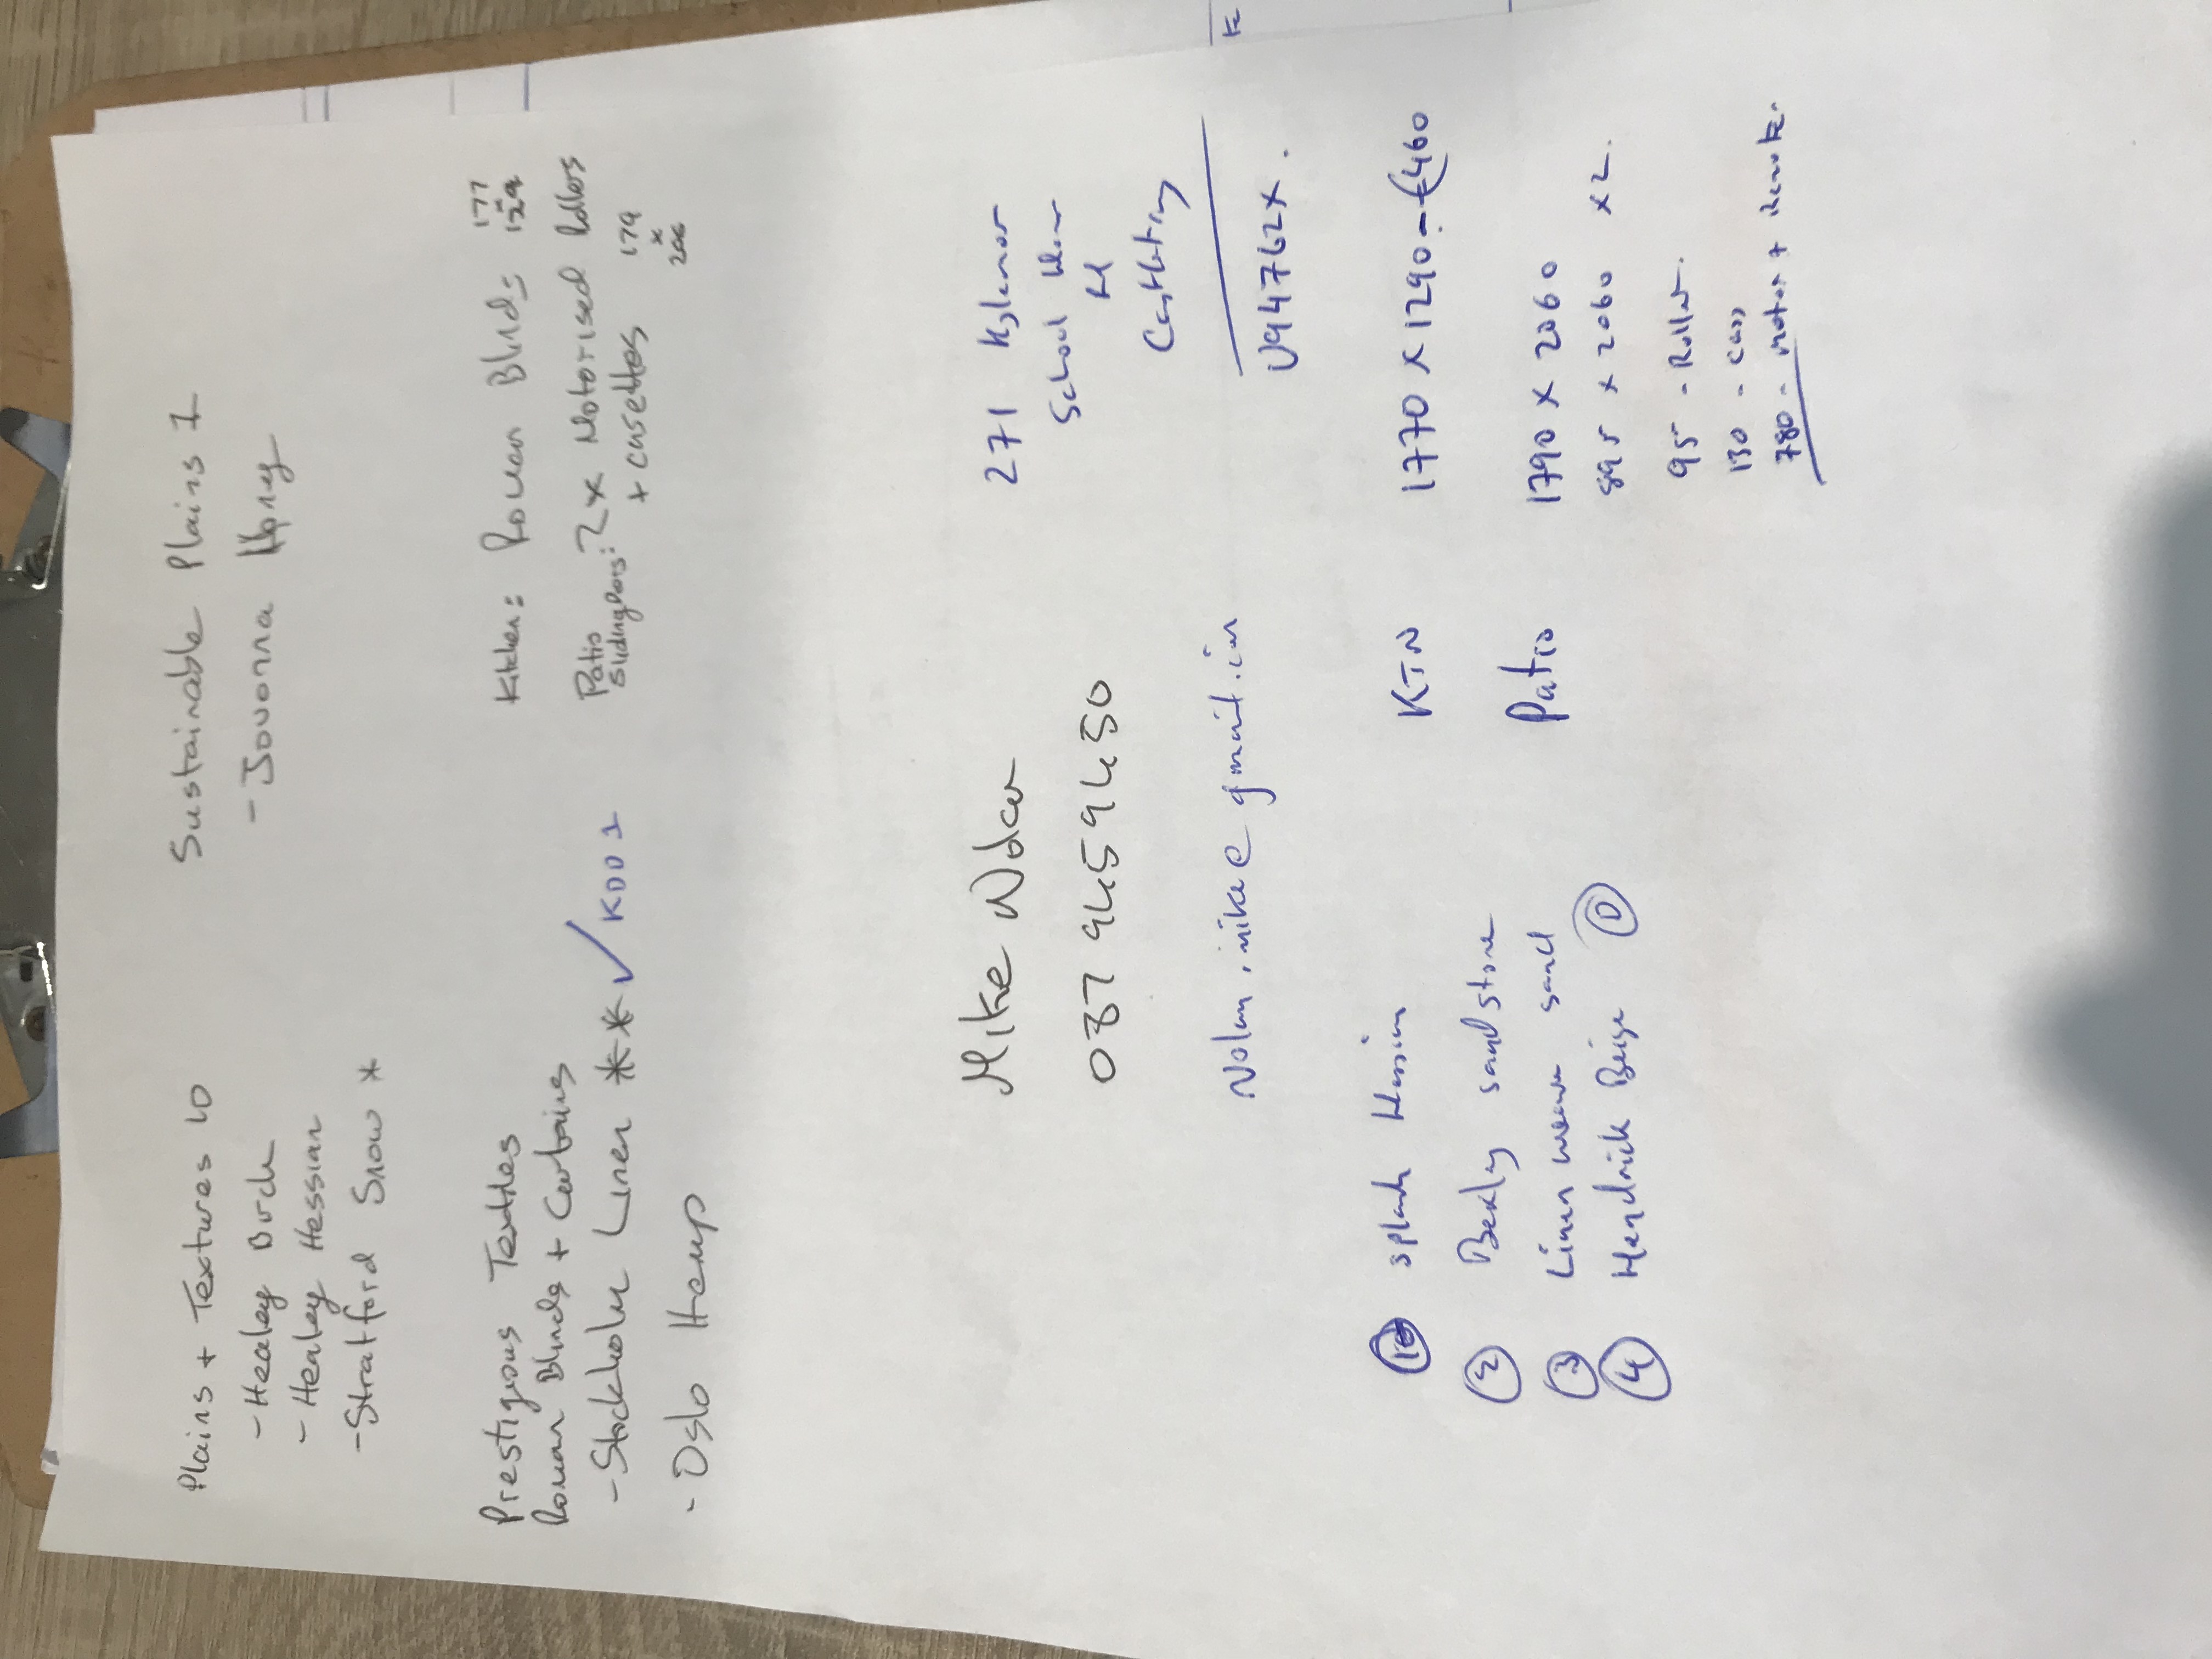 Plains + Textures 10
- Healey Birch
- Healey Hessian
- Stratford Snow *
Sustainable Plains 1
- Jovonna Honey
Prestigious Textiles
Roman Blinds + Curtains
- Stockholm Linen ** ✓ KDD1
- Oslo Hemp
Kitchen: Roman Blind: 177
129
Patio
Sliding Doors: 2x Motorised Rollers
+ casettes 179
x
206
Mike Nolan
087 9459450
271
School
Rd
V94762X.
① splash Hessian
② sandstone
③ Linen weave sand
④ Hendrick Beige
KTN 1770 x 1290 - €460
Patio 1790 x 2060
895 x 2060 x2.
95 - Roller.
130 - cass
780 - motor + Remote.